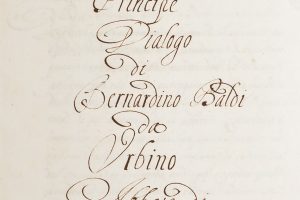 Principe
Dialogo
di
Bernardino Baldi
da
Vrbino
Abbate di